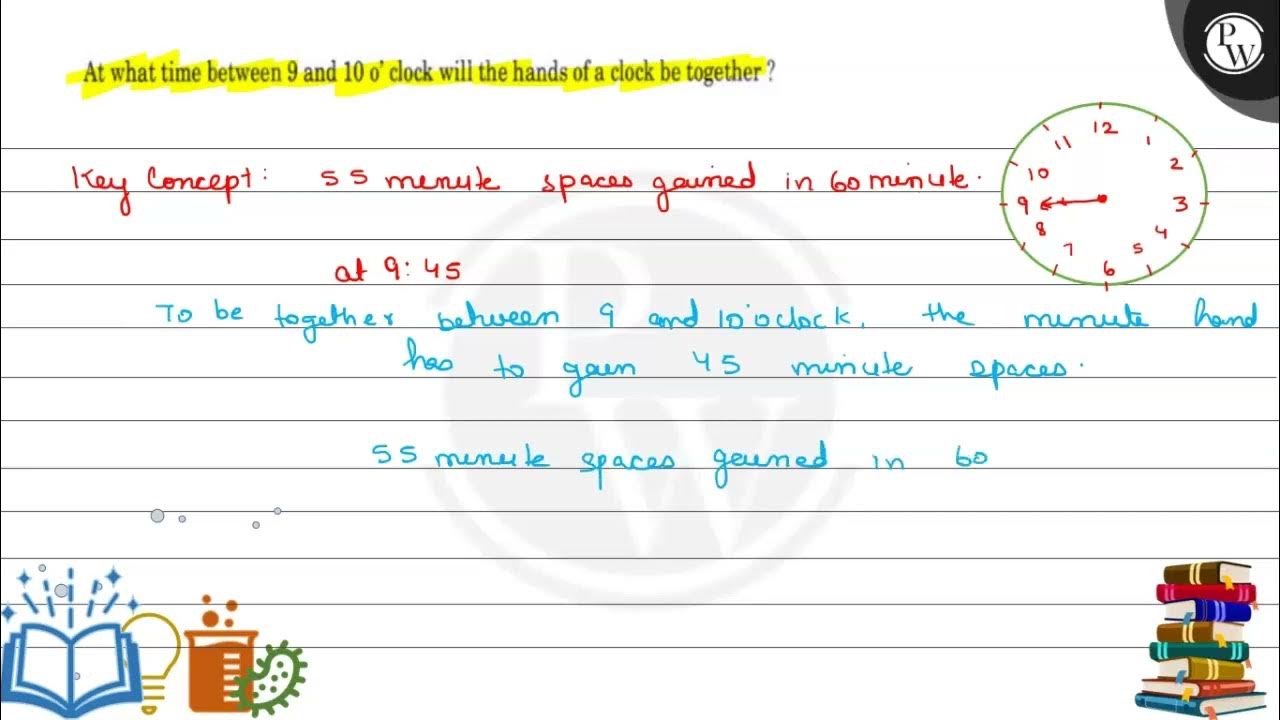 At what time between 9 and 10 o' clock will the hands of a clock be together ?
P
W
Key Concept: 55 minute spaces gained in 60 minute.
12
11
1
10
2
9
3
8
4
7
5
6
at 9:45
To be together between 9 and 10 o'clock, the minute hand
has to gain 45 minute spaces.
55 minute spaces gained in 60
P
W